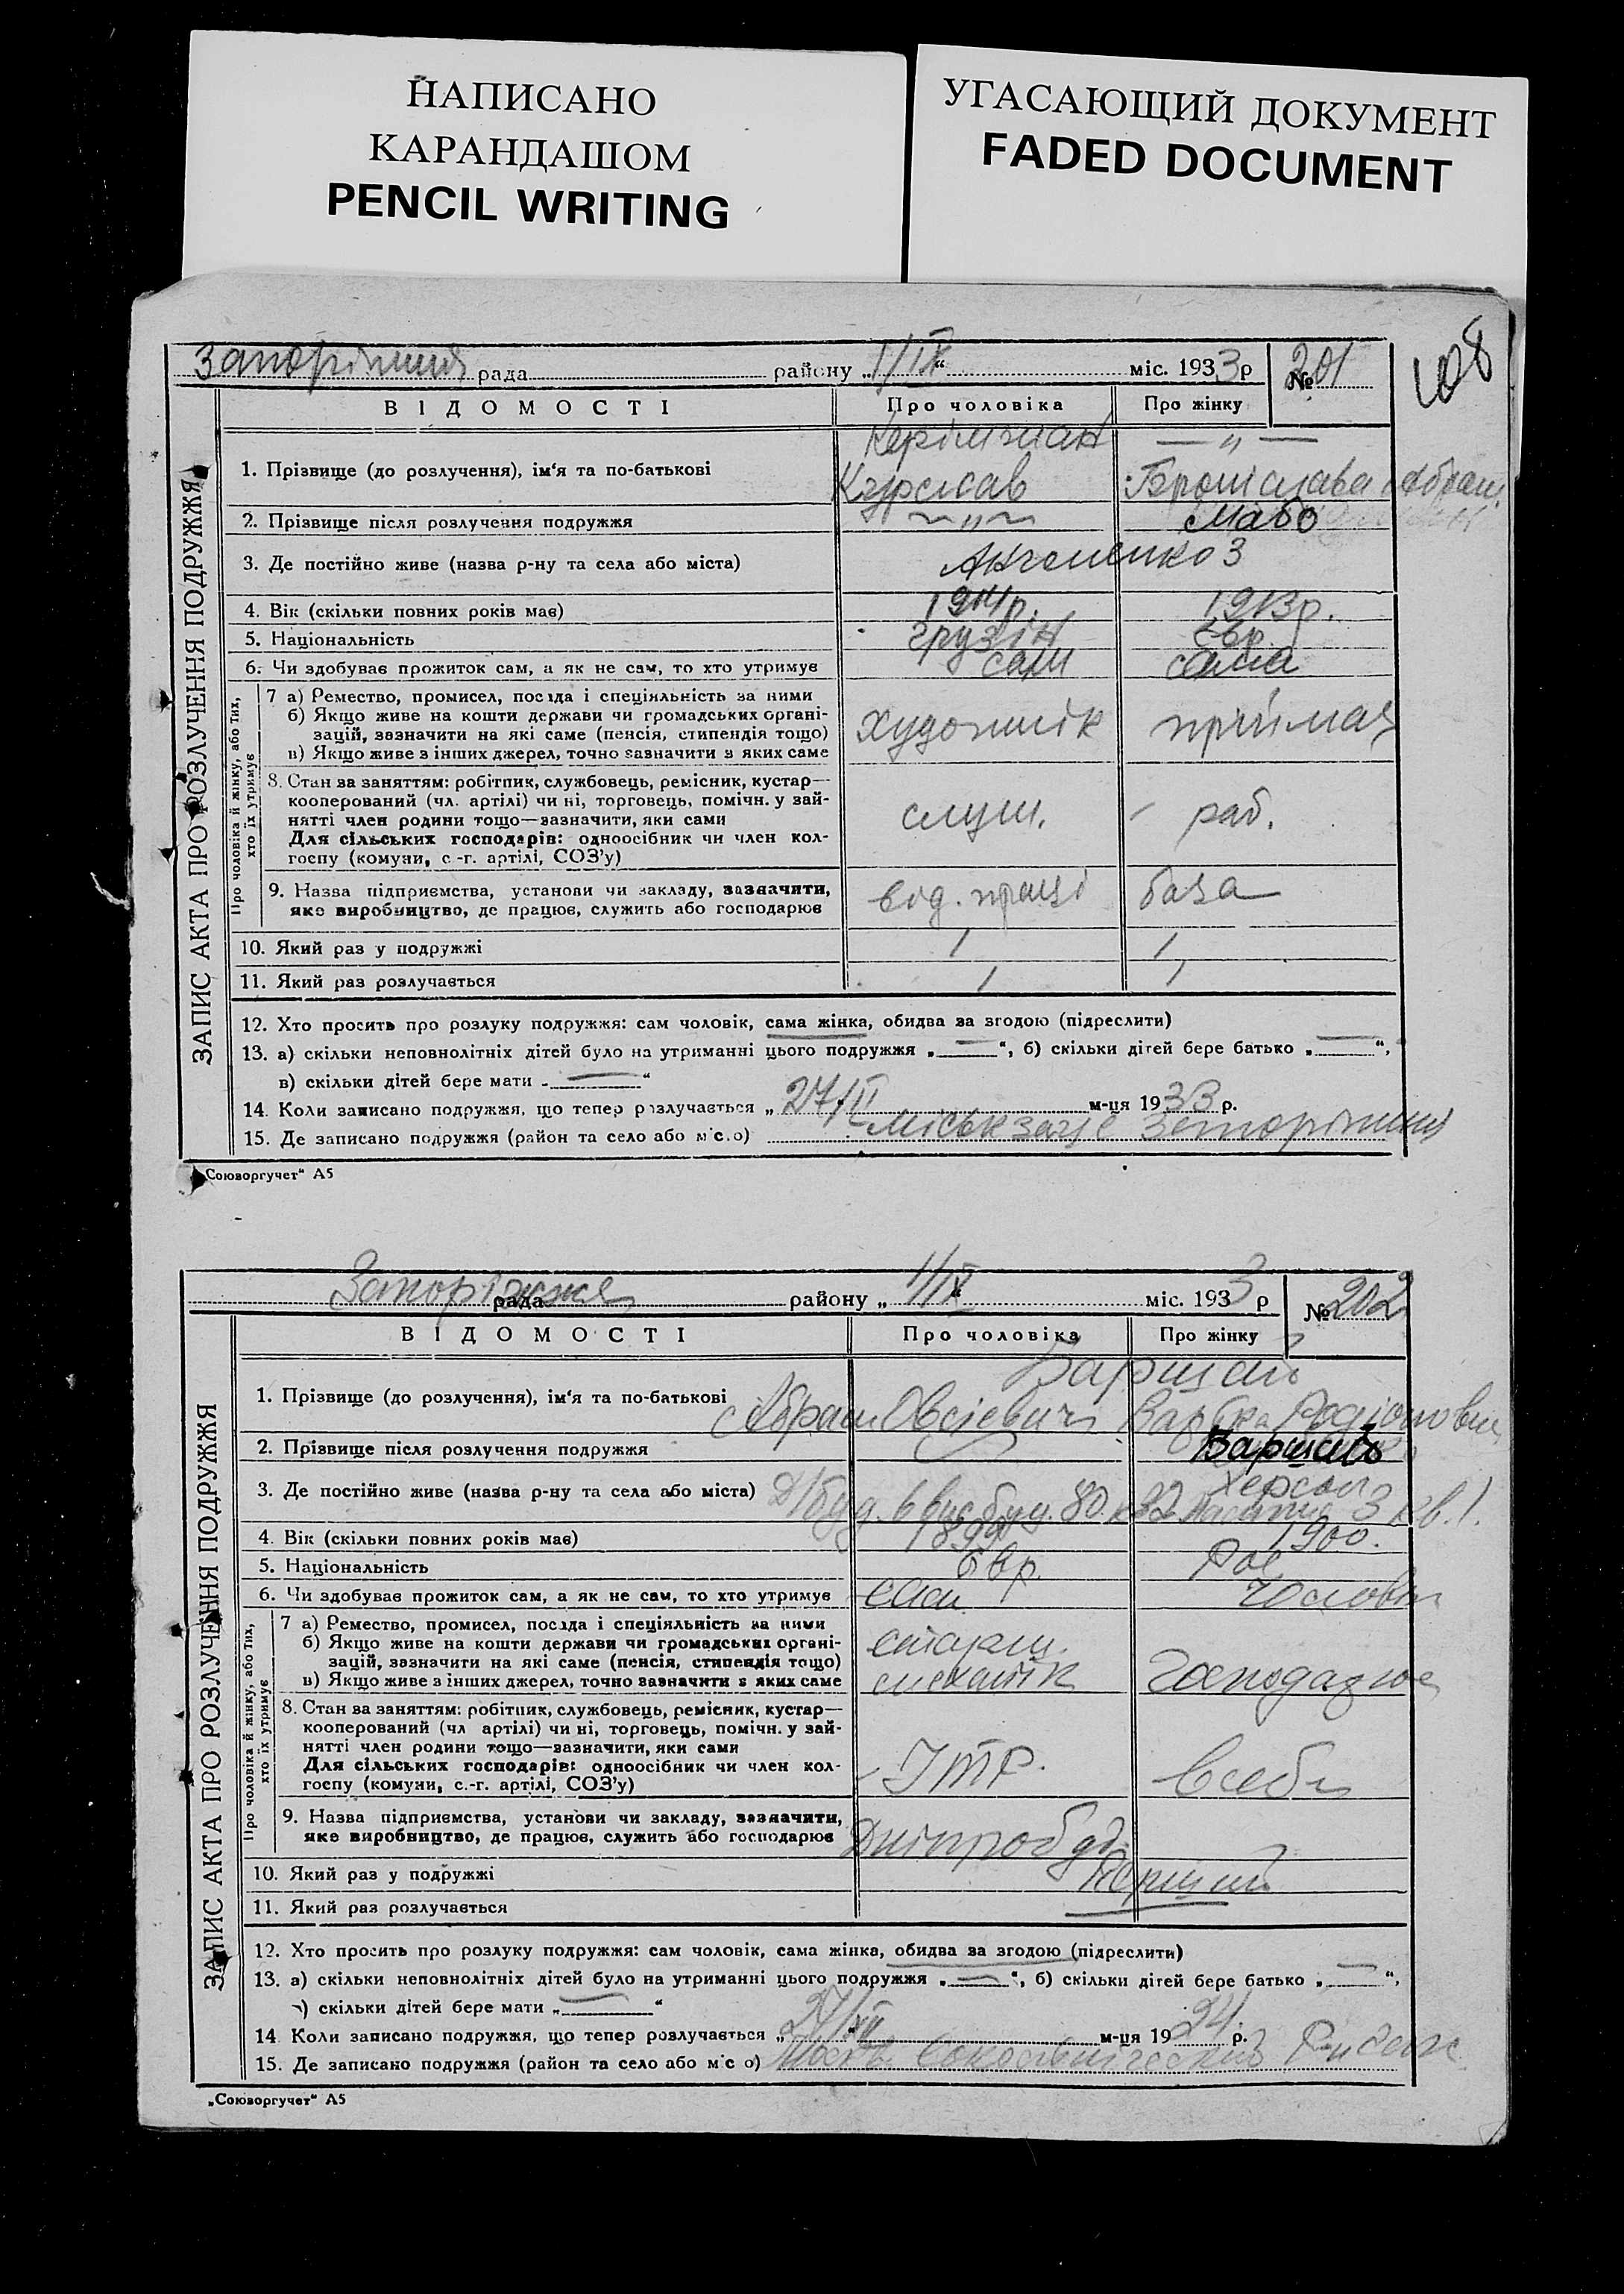 НАПИСАНО
КАРАНДАШОМ
PENCIL WRITING
УГАСАЮЩИЙ ДОКУМЕНТ
FADED DOCUMENT
108
рада району „1/IX“ міс. 1933 р № 201
ВІДОМОСТІ Про чоловіка Про жінку
ЗАПИС АКТА ПРО РОЗЛУЧЕННЯ ПОДРУЖЖЯ
— „ —
1. Прізвище (до розлучення), ім‘я та по-батькові Броніслава Абрам
2. Прізвище після розлучення подружжя — „ —
3. Де постійно живе (назва р-ну та села або міста)
4. Вік (скільки повних років має) 1913р.
5. Національність грузін євр.
6. Чи здобуває прожиток сам, а як не сам, то хто утримує сам сама
Про чоловіка й жінку, або тих, хто їх утримує
7 а) Ремество, промисел, посада і спеціяльність за ними
б) Якщо живе на кошти держави чи громадських органі-
зацій, зазначити на які саме (пенсія, стипендія тощо) художнік
в) Якщо живе з інших джерел, точно зазначити з яких саме
8. Стан за заняттям: робітник, службовець, ремісник, кустар—
кооперований (чл. артілі) чи ні, торговець, помічн. у зай-
нятті член родини тощо—зазначити, яки сами служ. раб.
Для сільських господарів: одноосібник чи член кол-
госпу (комуни, с.-г. артілі, СОЗ‘у)
9. Назва підприємства, установи чи закладу, зазначити,
яке виробництво, де працює, служить або господарює від. праці база
10. Який раз у подружжі 1 1
11. Який раз розлучається 1 1
12. Хто просить про розлуку подружжя: сам чоловік, сама жінка, обидва за згодою (підреслити)
13. а) скільки неповнолітніх дітей було на утриманні цього подружжя „—“, б) скільки дітей бере батько „—“,
в) скільки дітей бере мати „—“
14. Коли записано подружжя, що тепер розлучається „27/II м-ця 1933 р.
15. Де записано подружжя (район та село або місто)
„Союзоргучет“ А5
Запоріжжя рада району „1/IX“ міс. 1933 р № 202
ВІДОМОСТІ Про чоловіка Про жінку
ЗАПИС АКТА ПРО РОЗЛУЧЕННЯ ПОДРУЖЖЯ
1. Прізвище (до розлучення), ім‘я та по-батькові Абрам Овсієвич
2. Прізвище після розлучення подружжя
3. Де постійно живе (назва р-ну та села або міста) Херсон
4. Вік (скільки повних років має) 1900.
5. Національність Євр. Рос
6. Чи здобуває прожиток сам, а як не сам, то хто утримує сам чоловік
Про чоловіка й жінку, або тих, хто їх утримує
7 а) Ремество, промисел, посада і спеціяльність за ними
б) Якщо живе на кошти держави чи громадських органі-
зацій, зазначити на які саме (пенсія, стипендія тощо)
в) Якщо живе з інших джерел, точно зазначити з яких саме механік господарює
8. Стан за заняттям: робітник, службовець, ремісник, кустар—
кооперований (чл артілі) чи ні, торговець, помічн. у зай-
нятті член родини тощо—зазначити, яки сами
Для сільських господарів: одноосібник чи член кол- ІТР.
госпу (комуни, с.-г. артілі, СОЗ‘у)
9. Назва підприємства, установи чи закладу, зазначити,
яке виробництво, де працює, служить або господарює Дніпробуд
10. Який раз у подружжі Перший
11. Який раз розлучається
12. Хто просить про розлуку подружжя: сам чоловік, сама жінка, обидва за згодою (підреслити)
13. а) скільки неповнолітніх дітей було на утриманні цього подружжя „—“, б) скільки дітей бере батько „—“,
в) скільки дітей бере мати „—“
14. Коли записано подружжя, що тепер розлучається „ м-ця 1924 р.
15. Де записано подружжя (район та село або місто)
„Союзоргучет“ А5